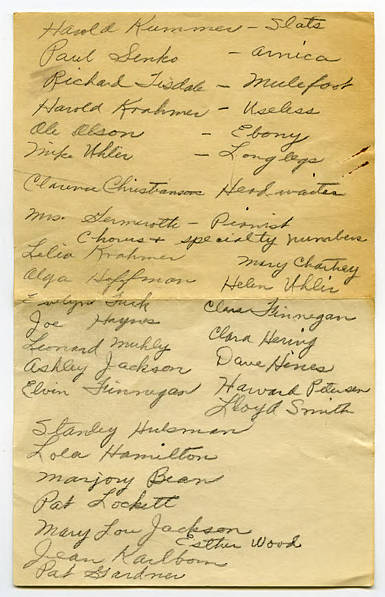 Harold Kummer - Slats
Paul Senko - Arnica
Richard Tisdale - Mulefoot
Harold Krahmer - Useless
Ole Olson - Ebony
Mike Uhler - Long legs
Clarence Christianson Head waiter
Mrs. Germeroth - Pianist
Chorus & specialty numbers
Lelia Krahmer Mary Charney
Olga Hoffman Helen Uhler
Evelyn Turk Clara Finnegan
Joe Haynes Clara Hering
Leonard Muhly Dave Hines
Ashley Jackson Howard Petersen
Elvin Finnegan Lloyd Smith
Stanley Hulsman
Lola Hamilton
Marjory Bean
Pat Lockett
Mary Lou Jackson
Esther Wood
Jean Karlbom
Pat Gardner